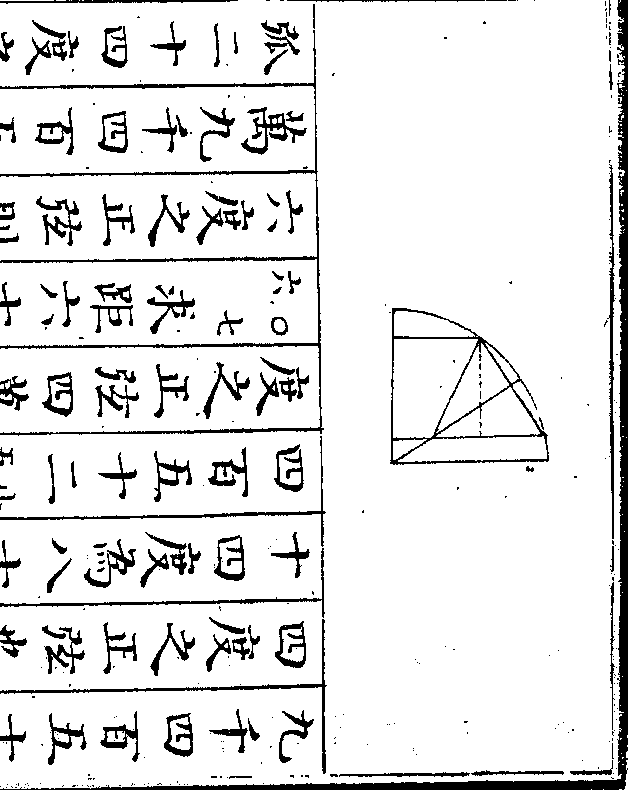 弧二十四度之
萬九千四百五
六度之正弦則
六〇七求距六十
度之正弦四萬
四百五十二
十四度為八十
四度之正弦
九千四百五十